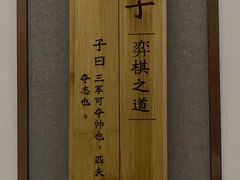 子
弈棋之道
子曰：三军可夺帅也，匹夫
夺志也。